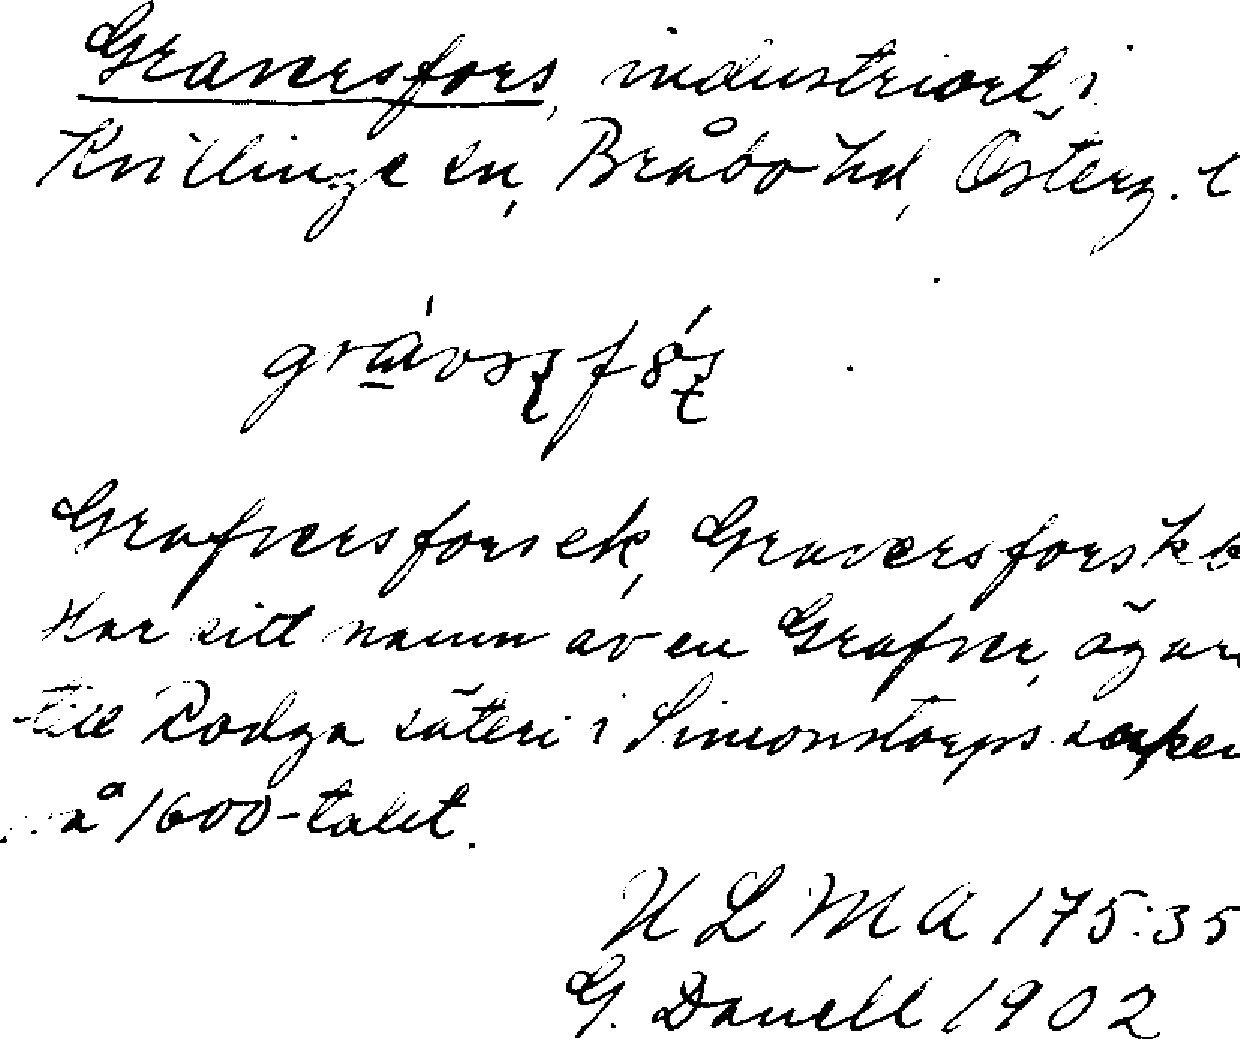 Graversfors, industriort i
Kvillinge sn, Bråbo hd, Österg. l
Grafversfors ek, Graversfors kb
Har sitt namn av en Grafver, ägare
till Rodga säteri i Simonstorps socken
på 1600-talet.
ULMA 175:35
G. Danell 1902